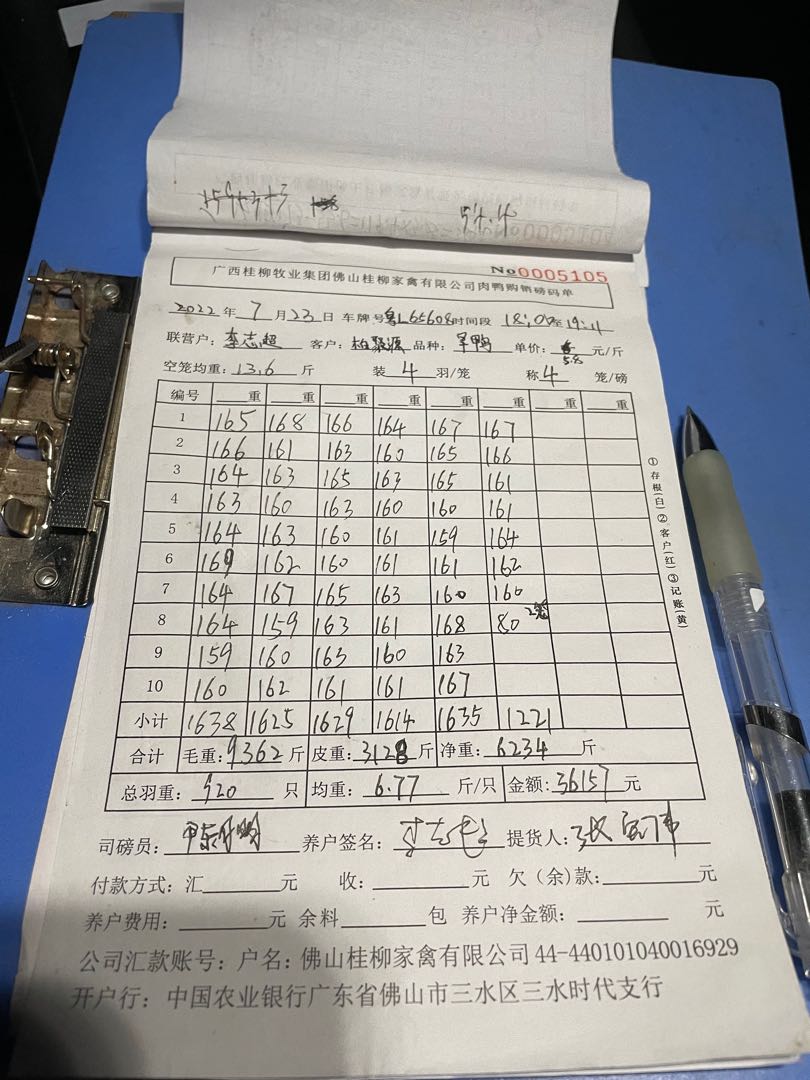 54.4
No0005105
广西桂柳牧业集团佛山桂柳家禽有限公司肉鸭购销磅码单
2022年7月23日 车牌号粤L65608时间段 18:00至19:4
联营户:李志超 客户:柏聚源 品种:羊鸭 单价:5.8元/斤
空笼均重:13.6斤 装4羽/笼 称4笼/磅
编号 重 重 重 重 重 重 重 重
1 165 168 166 164 167 167
2 166 161 163 160 165 166
3 164 163 165 163 165 161
4 163 160 163 160 160 161
5 164 163 160 161 159 164
6 169 162 160 161 161 162
7 164 167 165 163 160 160
8 164 159 163 161 168 80
9 159 160 163 160 163
10 160 162 161 161 167
小计 1638 1625 1629 1614 1635 1221
合计 毛重:9362斤 皮重:3128斤 净重:6234斤
总羽重:920只 均重:6.77斤/只 金额:36157元
司磅员: 养户签名: 提货人:
付款方式:汇 元 收: 元 欠(余)款: 元
养户费用: 元 余料 包 养户净金额: 元
公司汇款账号:户名:佛山桂柳家禽有限公司44-440101040016929
开户行:中国农业银行广东省佛山市三水区三水时代支行
①存根(白)②客户(红)③记账(黄)